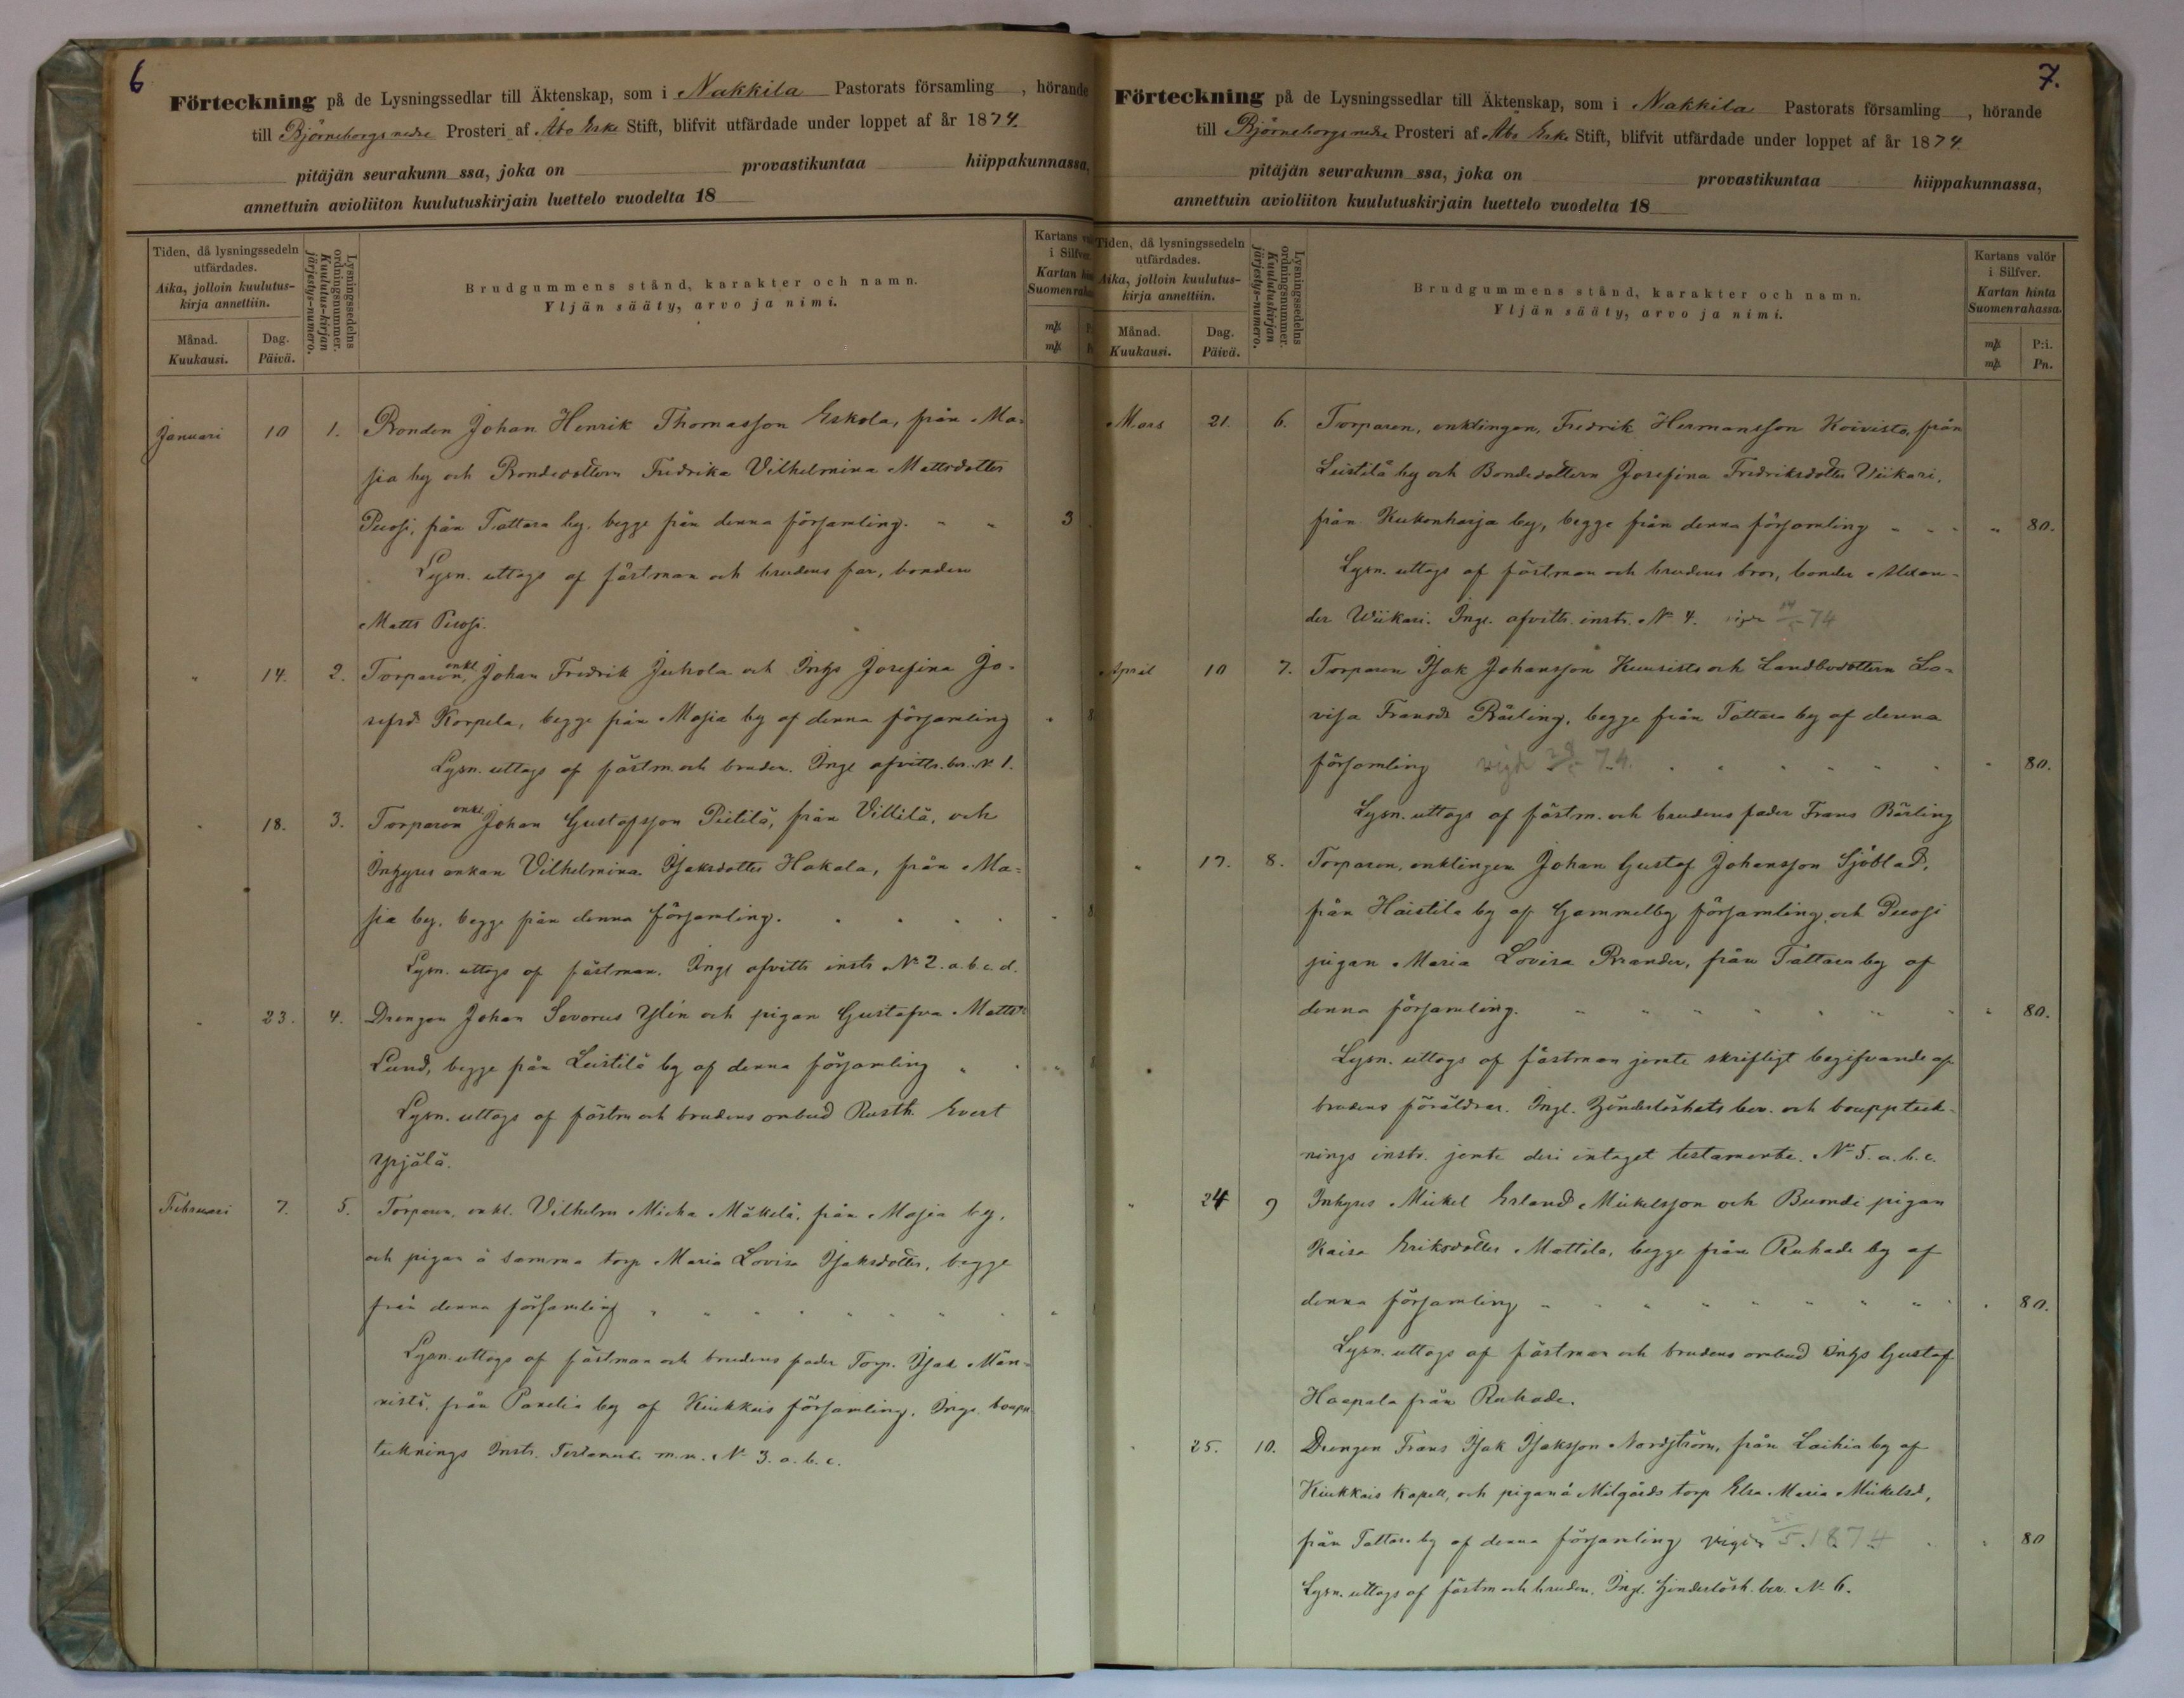 6
Förteckning på de Lysningssedlar till Äktenskap, som i Nakkila Pastorats församling , hörande
till Björneborgs nedre Prosteri af Åbo Erke Stift, blifvit utfärdade under loppet af år 1874.
pitäjän seurakunn ssa, joka on provastikuntaa hiippakunnassa,
annettuin avioliiton kuulutuskirjain luettelo vuodelta 18
Tiden, då lysningssedeln
utfärdades.
Aika, jolloin kuulutus-
kirja annettiin.
Månad.
Kuukausi.
Dag.
Päivä.
Lysningssedelns
ordningsnummer.
Kuulutus-kirjan
järjestys-numero.
Brudgummens stånd, karakter och namn.
Yljän sääty, arvo ja nimi.
Kartans
i Silfver.
Kartan
Suomenraha
Januari 10 1. Bonden Johan Henrik Thomasson Eskola, från Ma-
sia by och Bondedottern Fredrika Vilhelmina Mattsdotter
Puosi, från Tattara by, begge från denna församling. " " 3
Lysn. uttogs af fästman och brudens far, bonden
Matts Puosi.
" 14. 2. Torparen, enkl. Johan Fredrik Juhola och Inhys Josefina Jo-
sefsdr Korpela, begge från Masia by af denna församling " 8
Lysn. uttogs af fästm. och bruden. Ingl afvittr. bev. N. 1.
" 18. 3. Torparen enkl. Johan Gustafsson Pietilä, från Villilä, och
Inhyses enkan Vilhelmina Isaksdotter Hakala, från Ma-
sia by, begge från denna församling. 8
Lysn. uttogs af fästman. Ingl afvittr instr No 2. a. b. c. d.
" 23. 4. Drengen Johan Severus Ylén och pigan Gustafva Mattsdr
Lund, begge från Leistilä by af denna församling "
Lysn. uttogs af fästm och brudens ombud Rusth. Evert
Ypjälä.
Februari 7. 5. Torparen, enkl. Vilhelm Micka Mäkelä, från Masia by,
och pigan å samma torp Maria Lovisa Isaksdotter, begge
från denna församling " "
Lysn. uttogs af fästman och brudens fader Torp. Isak Män-
nistö, från Panelia by af Kiukkais församling. Ingl. boupp
tecknings Instr. Testamente m.m. N. 3. a. b. c.
7.
Förteckning på de Lysningssedlar till Äktenskap, som i Nakkila Pastorats församling , hörande
till Björneborgs nedre Prosteri af Åbo Erke Stift, blifvit utfärdade under loppet af år 1874
pitäjän seurakunn ssa, joka on provastikuntaa hiippakunnassa,
annettuin avioliiton kuulutuskirjain luettelo vuodelta 18
Tiden, då lysningssedeln
utfärdades.
Aika, jolloin kuulutus-
kirja annettiin.
Månad.
Kuukausi.
Dag.
Päivä.
Lysningssedelns
ordningsnummer.
Kuulutuskirjan
järjestys-numero.
Brudgummens stånd, karakter och namn.
Yljän sääty, arvo ja nimi.
Kartans valör
i Silfver.
Kartan hinta
Suomenrahassa.
P:i.
Pn.
Mars 21. 6. Torparen, enklingen, Fredrik Hermansson Koivisto, från
Leistilä by och Bondedottern Josefina Fredriksdotter Wiikari,
från Kukonharja by, begge från denna församling " " " 80.
Lysn. uttogs af fästman och brudens bror, bonden Alexan-
der Wiikari. Ingl. afvittr. instr. No 4. 74
April 10 7. Torparen Isak Johansson Kuusisto och Landbodottern Lo-
visa Fransdr Bärling, begge från Tattara by af denna
församling vigde 74. " 80.
Lysn. uttogs af fästm. och brudens fader Frans Bärling
" 17. 8. Torparen, enklingen Johan Gustaf Johansson Sjöblad,
från Haistila by af Gammelby församling och Puosi
pigan Maria Lovisa Brander, från Tattara by af
denna församling. " " 80.
Lysn. uttogs af fästman jemte skriftligt begifvande af
brudens föräldrar. Ingl. hinderlöshets bev. och bouppteck-
nings instr. jemte deri intaget testamente. No 5. a. b. c.
" 24 9 Inhyses Mickel Erland Mickelsson och Bumdi pigan
Kaisa Eriksdotter Mattila, begge från Ruhade by af
denna församling " " 80.
Lysn. uttogs af fästman och brudens ombud Inhys Gustaf
Haapala från Ruhade.
" 25. 10. Drengen Frans Isak Isaksson Nordström, från Laihia by af
Kiukkais Kapell, och pigan å Milgårds torp Elsa Maria Mickelsd,
från Tattara by af denna församling vigde 1874 " 80
Lysn. uttogs af fästm och bruden. Ingl. hinderlösh. bev. N. 6.